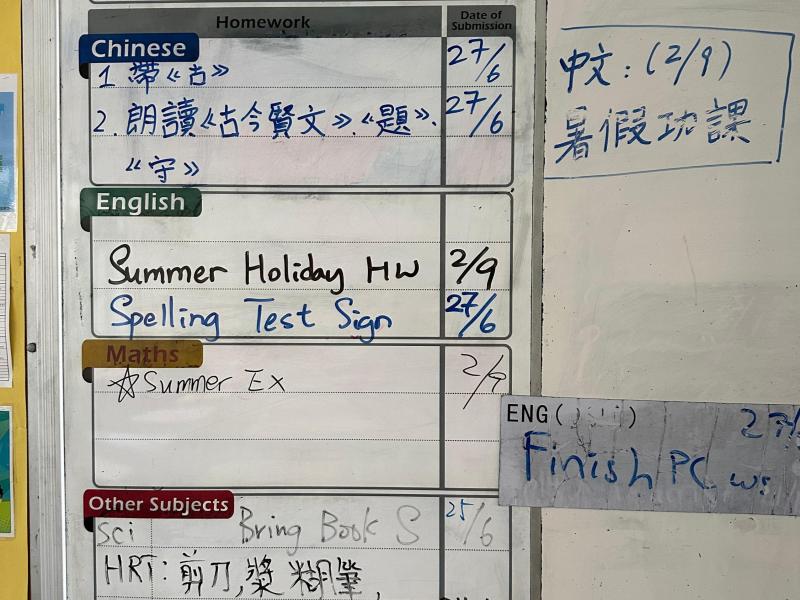 Homework
Date of Submission
Chinese
1. 帶《古》 27/6
2. 朗讀《古今賢文》.《題》. 27/6
《守》
English
Summer Holiday HW 2/9
Spelling Test Sign 27/6
Maths
☆Summer Ex 2/9
Other Subjects
Sci Bring Book S 25/6
HRT: 剪刀,漿糊筆,
中文:(2/9)
暑假功課
ENG( ) 27/
Finish PC ws